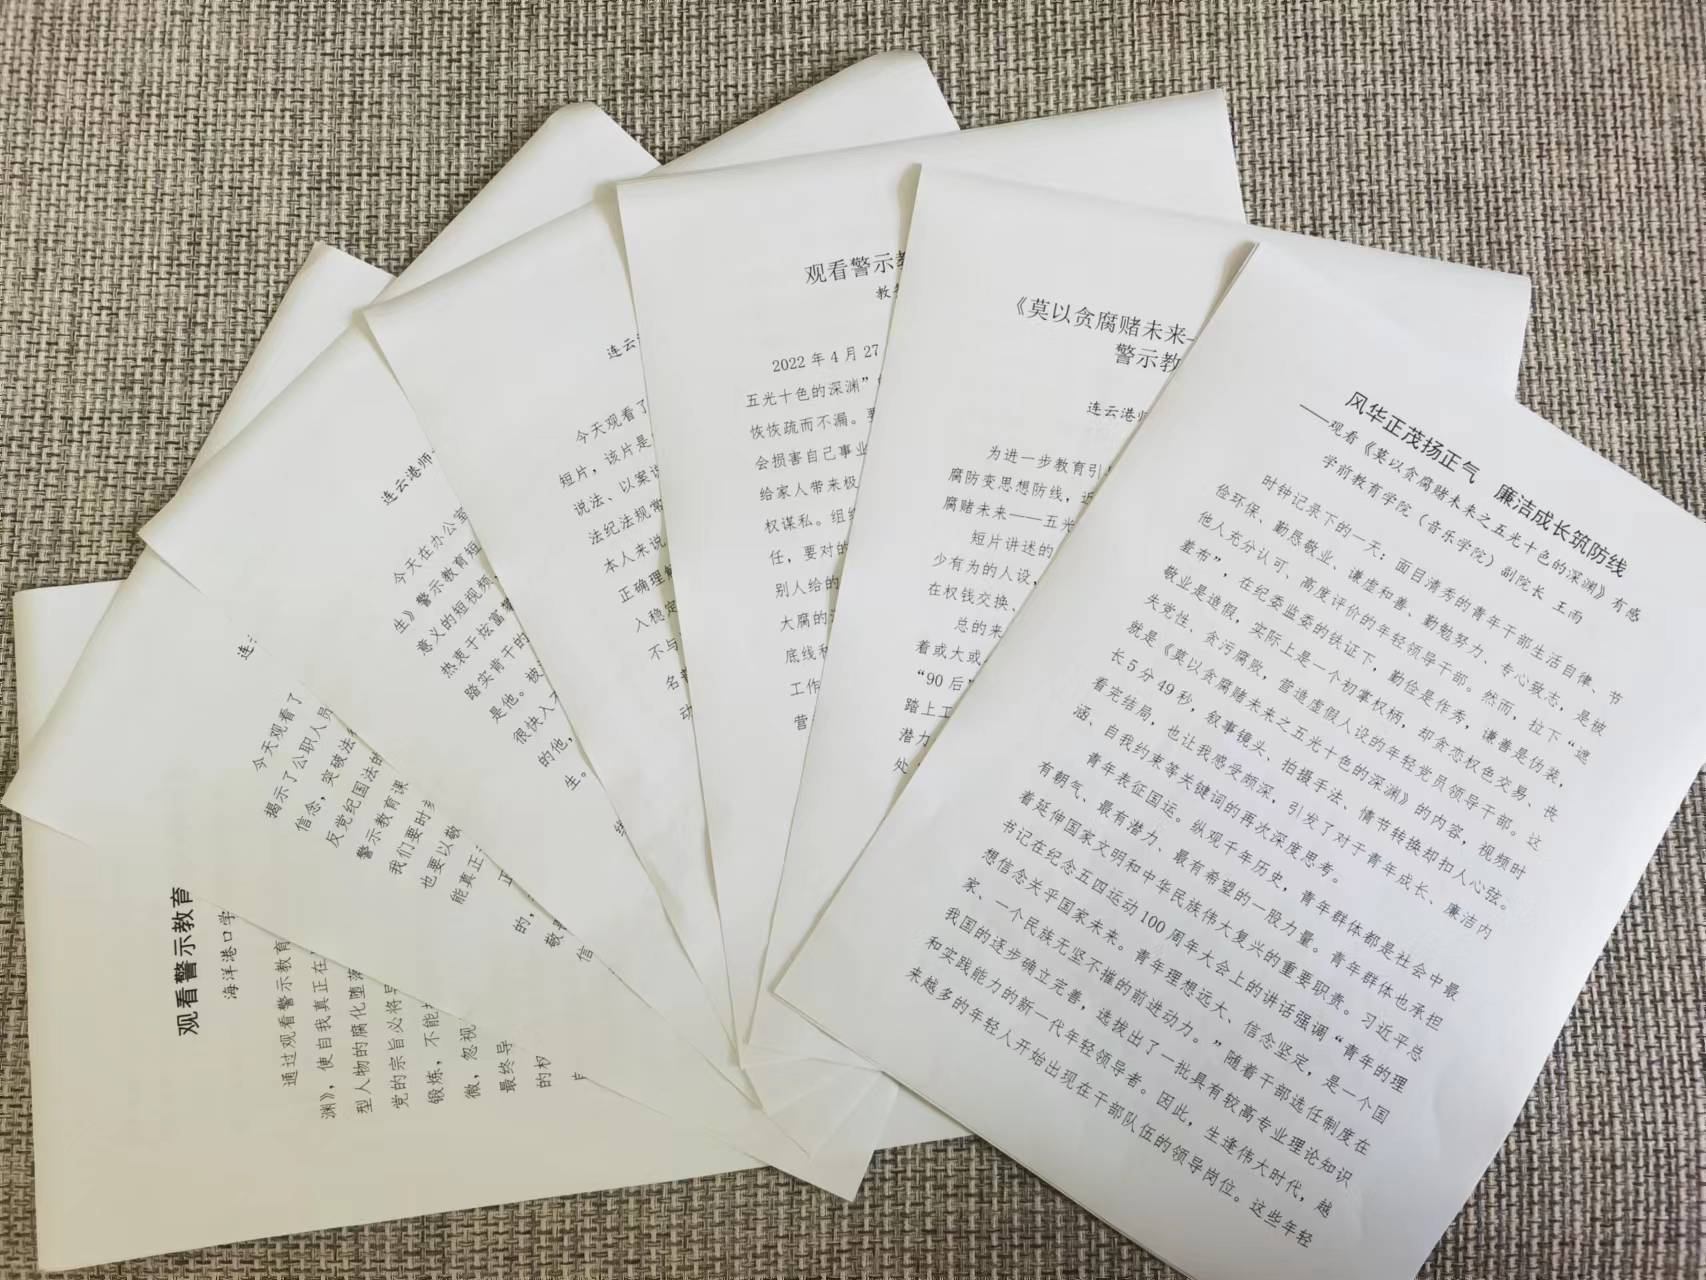 风华正茂扬正气 廉洁成长筑防线
——观看《莫以贪腐赌未来之五光十色的深渊》有感
学前教育学院（音乐学院）副院长 王雨
时钟记录下的一天：面目清秀的青年干部生活自律、节
俭环保、勤恳敬业、谦虚和善、勤勉努力、专心致志，是被
他人充分认可、高度评价的年轻领导干部。然而，拉下“遮
羞布”，在纪委监委的铁证下，勤俭是作秀，谦善是伪装，
敬业是造假，实际上是一个初掌权柄，却贪恋权色交易、丧
失党性、贪污腐败，营造虚假人设的年轻党员领导干部。这
就是《莫以贪腐赌未来之五光十色的深渊》的内容，视频时
长5分49秒，叙事镜头、拍摄手法、情节转换却扣人心弦。
看完结局，也让我感受颇深，引发了对于青年成长、廉洁内
涵、自我约束等关键词的再次深度思考。
青年表征国运。纵观千年历史，青年群体都是社会中最
有朝气、最有潜力、最有希望的一股力量。青年群体也承担
着延伸国家文明和中华民族伟大复兴的重要职责。习近平总
书记在纪念五四运动100周年大会上的讲话强调“青年的理
想信念关乎国家未来。青年理想远大、信念坚定，是一个国
家、一个民族无坚不摧的前进动力。”随着干部选任制度在
我国的逐步确立完善，选拔出了一批具有较高专业理论知识
和实践能力的新一代年轻领导者。因此，生逢伟大时代，越
来越多的年轻人开始出现在干部队伍的领导岗位。这些年轻
《莫以贪腐赌未来—
警示教
连云港师
为进一步教育引
腐防变思想防线，近
腐赌未来——五光
短片讲述的
少有为的人设，
在权钱交换、
总的来
着或大或
“90后”
踏上工
潜力
处
观看警示教
教
2022年4月27
五光十色的深渊”
恢恢疏而不漏。要
会损害自己事业
给家人带来极
权谋私。组织
任，要对的
别人给的
大腐的
底线和
工作
营
连云
今天观看了
短片，该片是
说法、以案说
法纪法规常
本人来说
正确理解
入稳定
不与
名
动
连云港师
今天在办公室
生》警示教育短
意义的短视频，
热衷于炫富
踏实肯干的
是他。被
很快入
的他，
生。
连云
今天观看了
揭示了公职人员
信念，突破法
反党纪国法的
警示教育课
我们要时
也要以敬
能真正
的，
敬
信
观看警示教育
海洋港口学
通过观看警示教育
渊》，使自我真正在
型人物的腐化堕落
党的宗旨必将导
锻炼，不能
微，忽视
最终导
的权